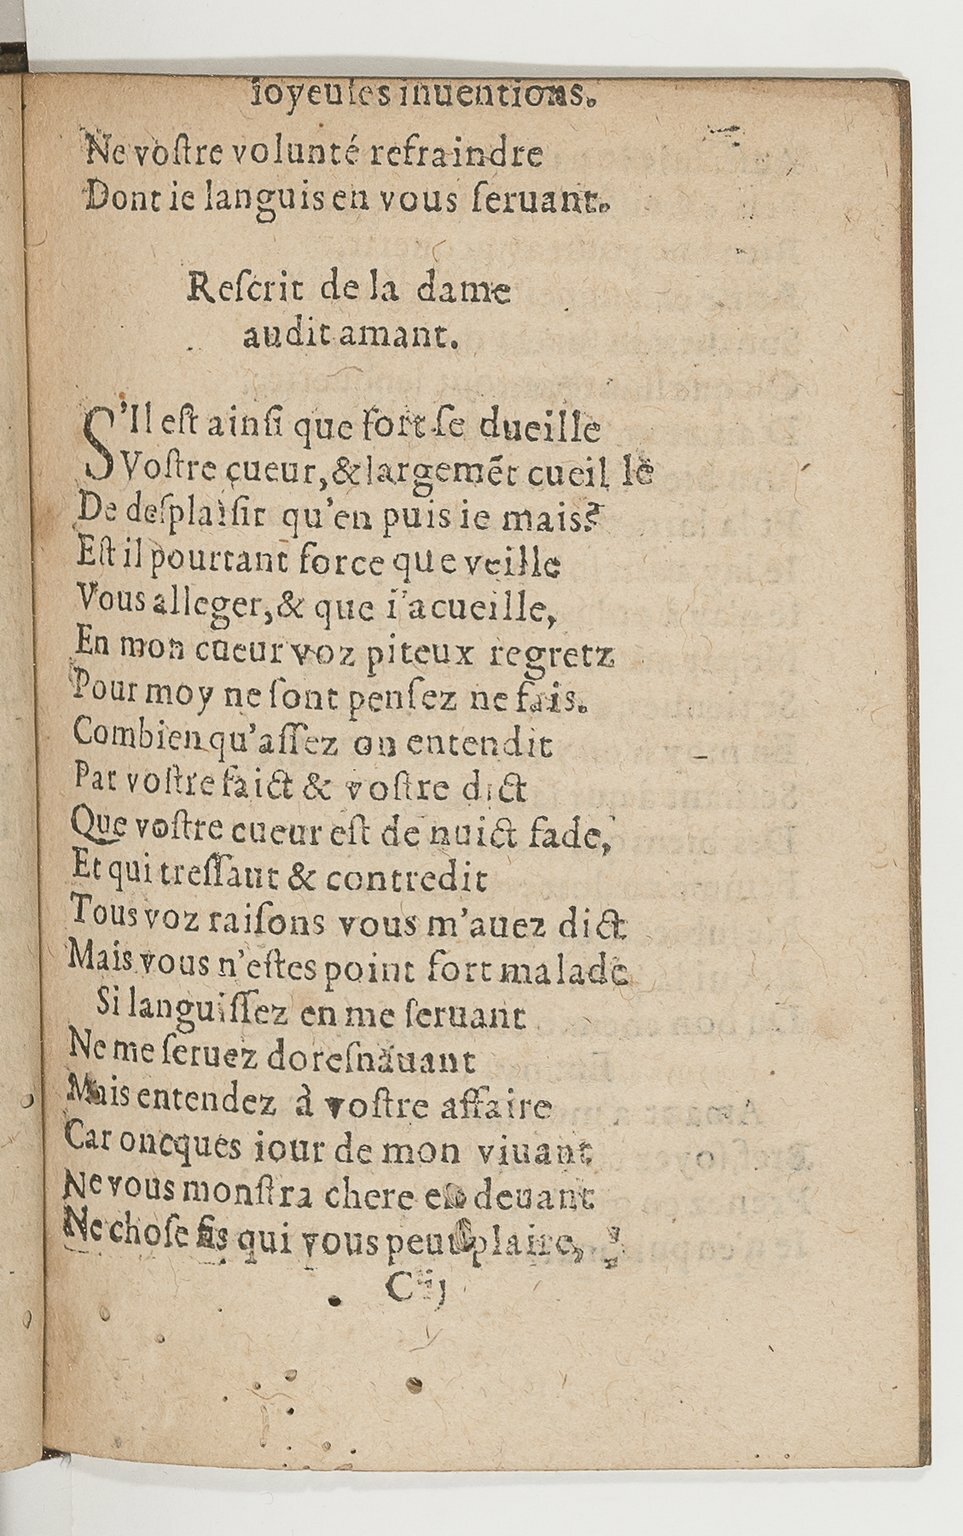 ioyeuſes inuentions.
Ne voſtre volunté refraindre
Dont ie languis en vous ſeruant.
Reſcrit de la dame
audit amant.
S'Il eſt ainſi que fort ſe dueille
Voſtre cueur, & largemẽt cueil le
De deſplaiſir qu'en puis ie mais?
Eſt il pourtant force que veille
Vous alleger, & que i'acueille,
En mon cueur voz piteux regretz
Pour moy ne ſont penſez ne fais.
Combien qu'aſſez on entendit
Par voſtre faict & voſtre dict
Que voſtre cueur eſt de nuict fade,
Et qui treſſaut & contredit
Tous voz raiſons vous m'auez dict
Mais vous n'eſtes point fort malade
Si languiſſez en me ſeruant
Ne me ſeruez doreſnauant
Mais entendez à voſtre affaire
Car oncques iour de mon viuant
Ne vous monſtra chere en deuant
Ne choſe fis qui vous peut plaire,
C iij